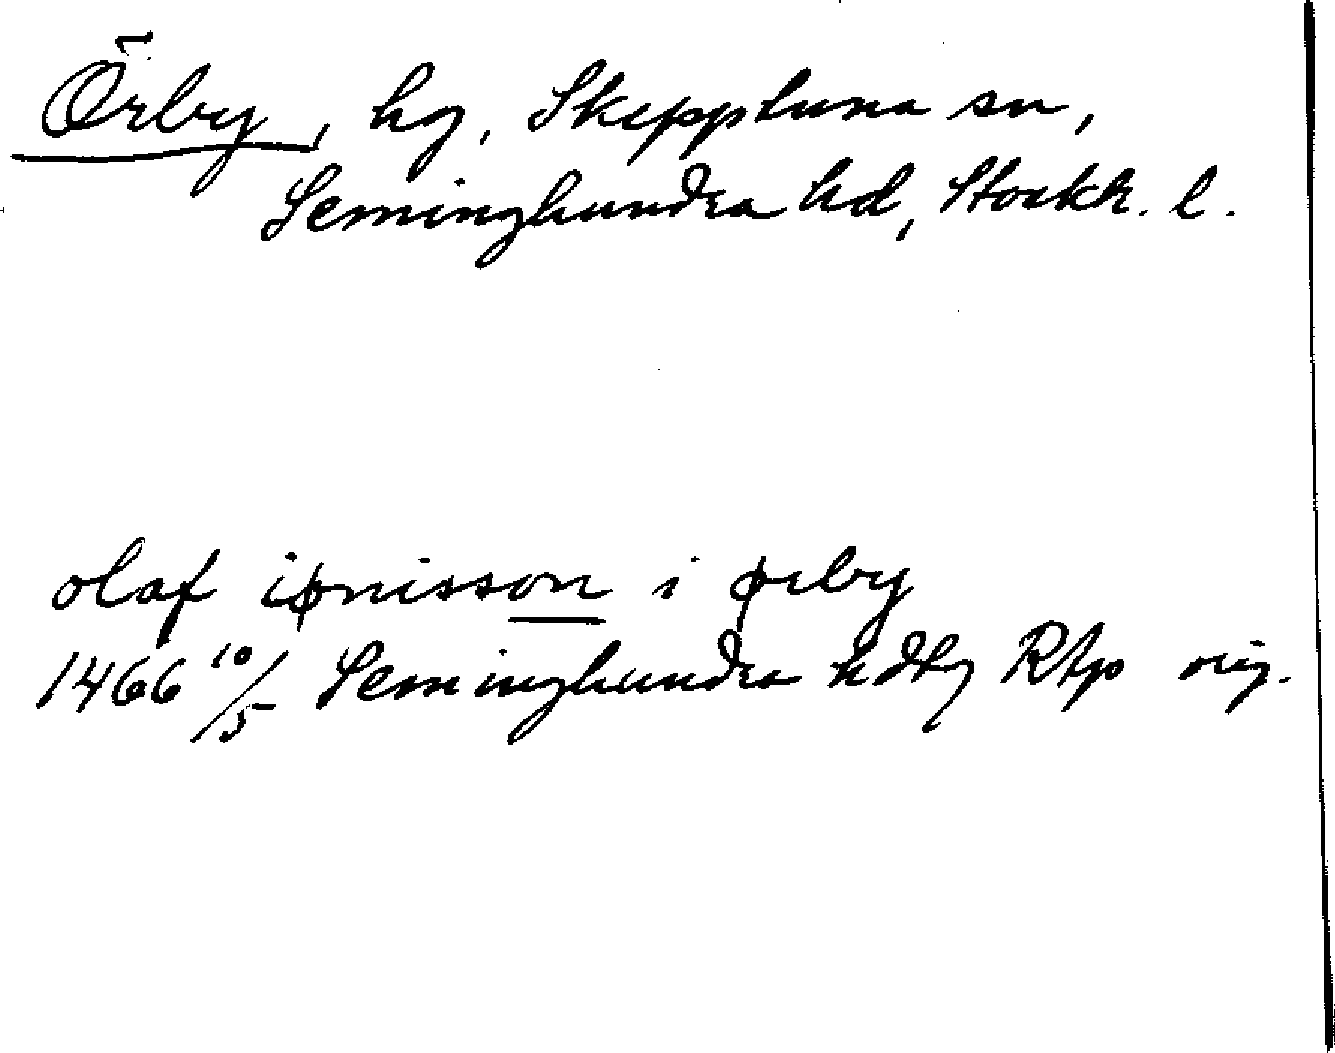 Örby, hg, Skepptuna sn,
Seminghundra hd, Stockh. l.
olaf iønisson i ørby
1466 10/5 Seminghundra hdtg Rap orig.